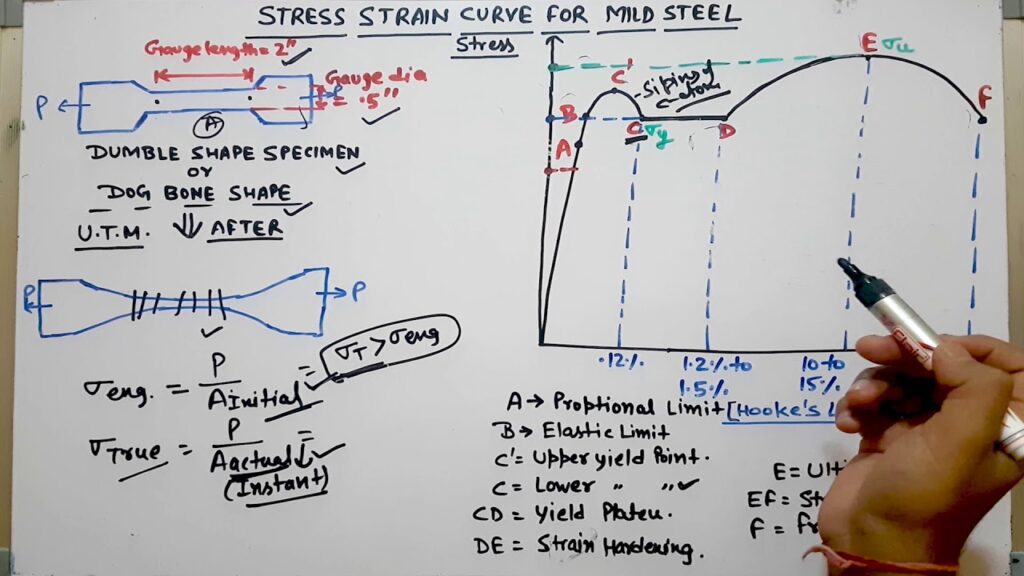 STRESS STRAIN CURVE FOR MILD STEEL
Stress
Gauge length = 2"
Gauge dia
= .5"
P
P
A
DUMBLE SHAPE SPECIMEN
or
DOG BONE SHAPE
U.T.M. ⇓ AFTER
P
P
σeng. = P / A Initial =
σT > σeng
σTrue = P / A actual ↓ =
(Instant)
E σu
C'
Sliping of
atom
F
B
C σy
D
A
.12%
1.2% to
1.5%
10 to
15%
A → Proptional Limit [Hooke's L
B → Elastic Limit
C' = Upper yield Point.
C = Lower " "
CD = Yield Plateu.
DE = Strain Hardening.
E = Ult
EF = St
F = Fr